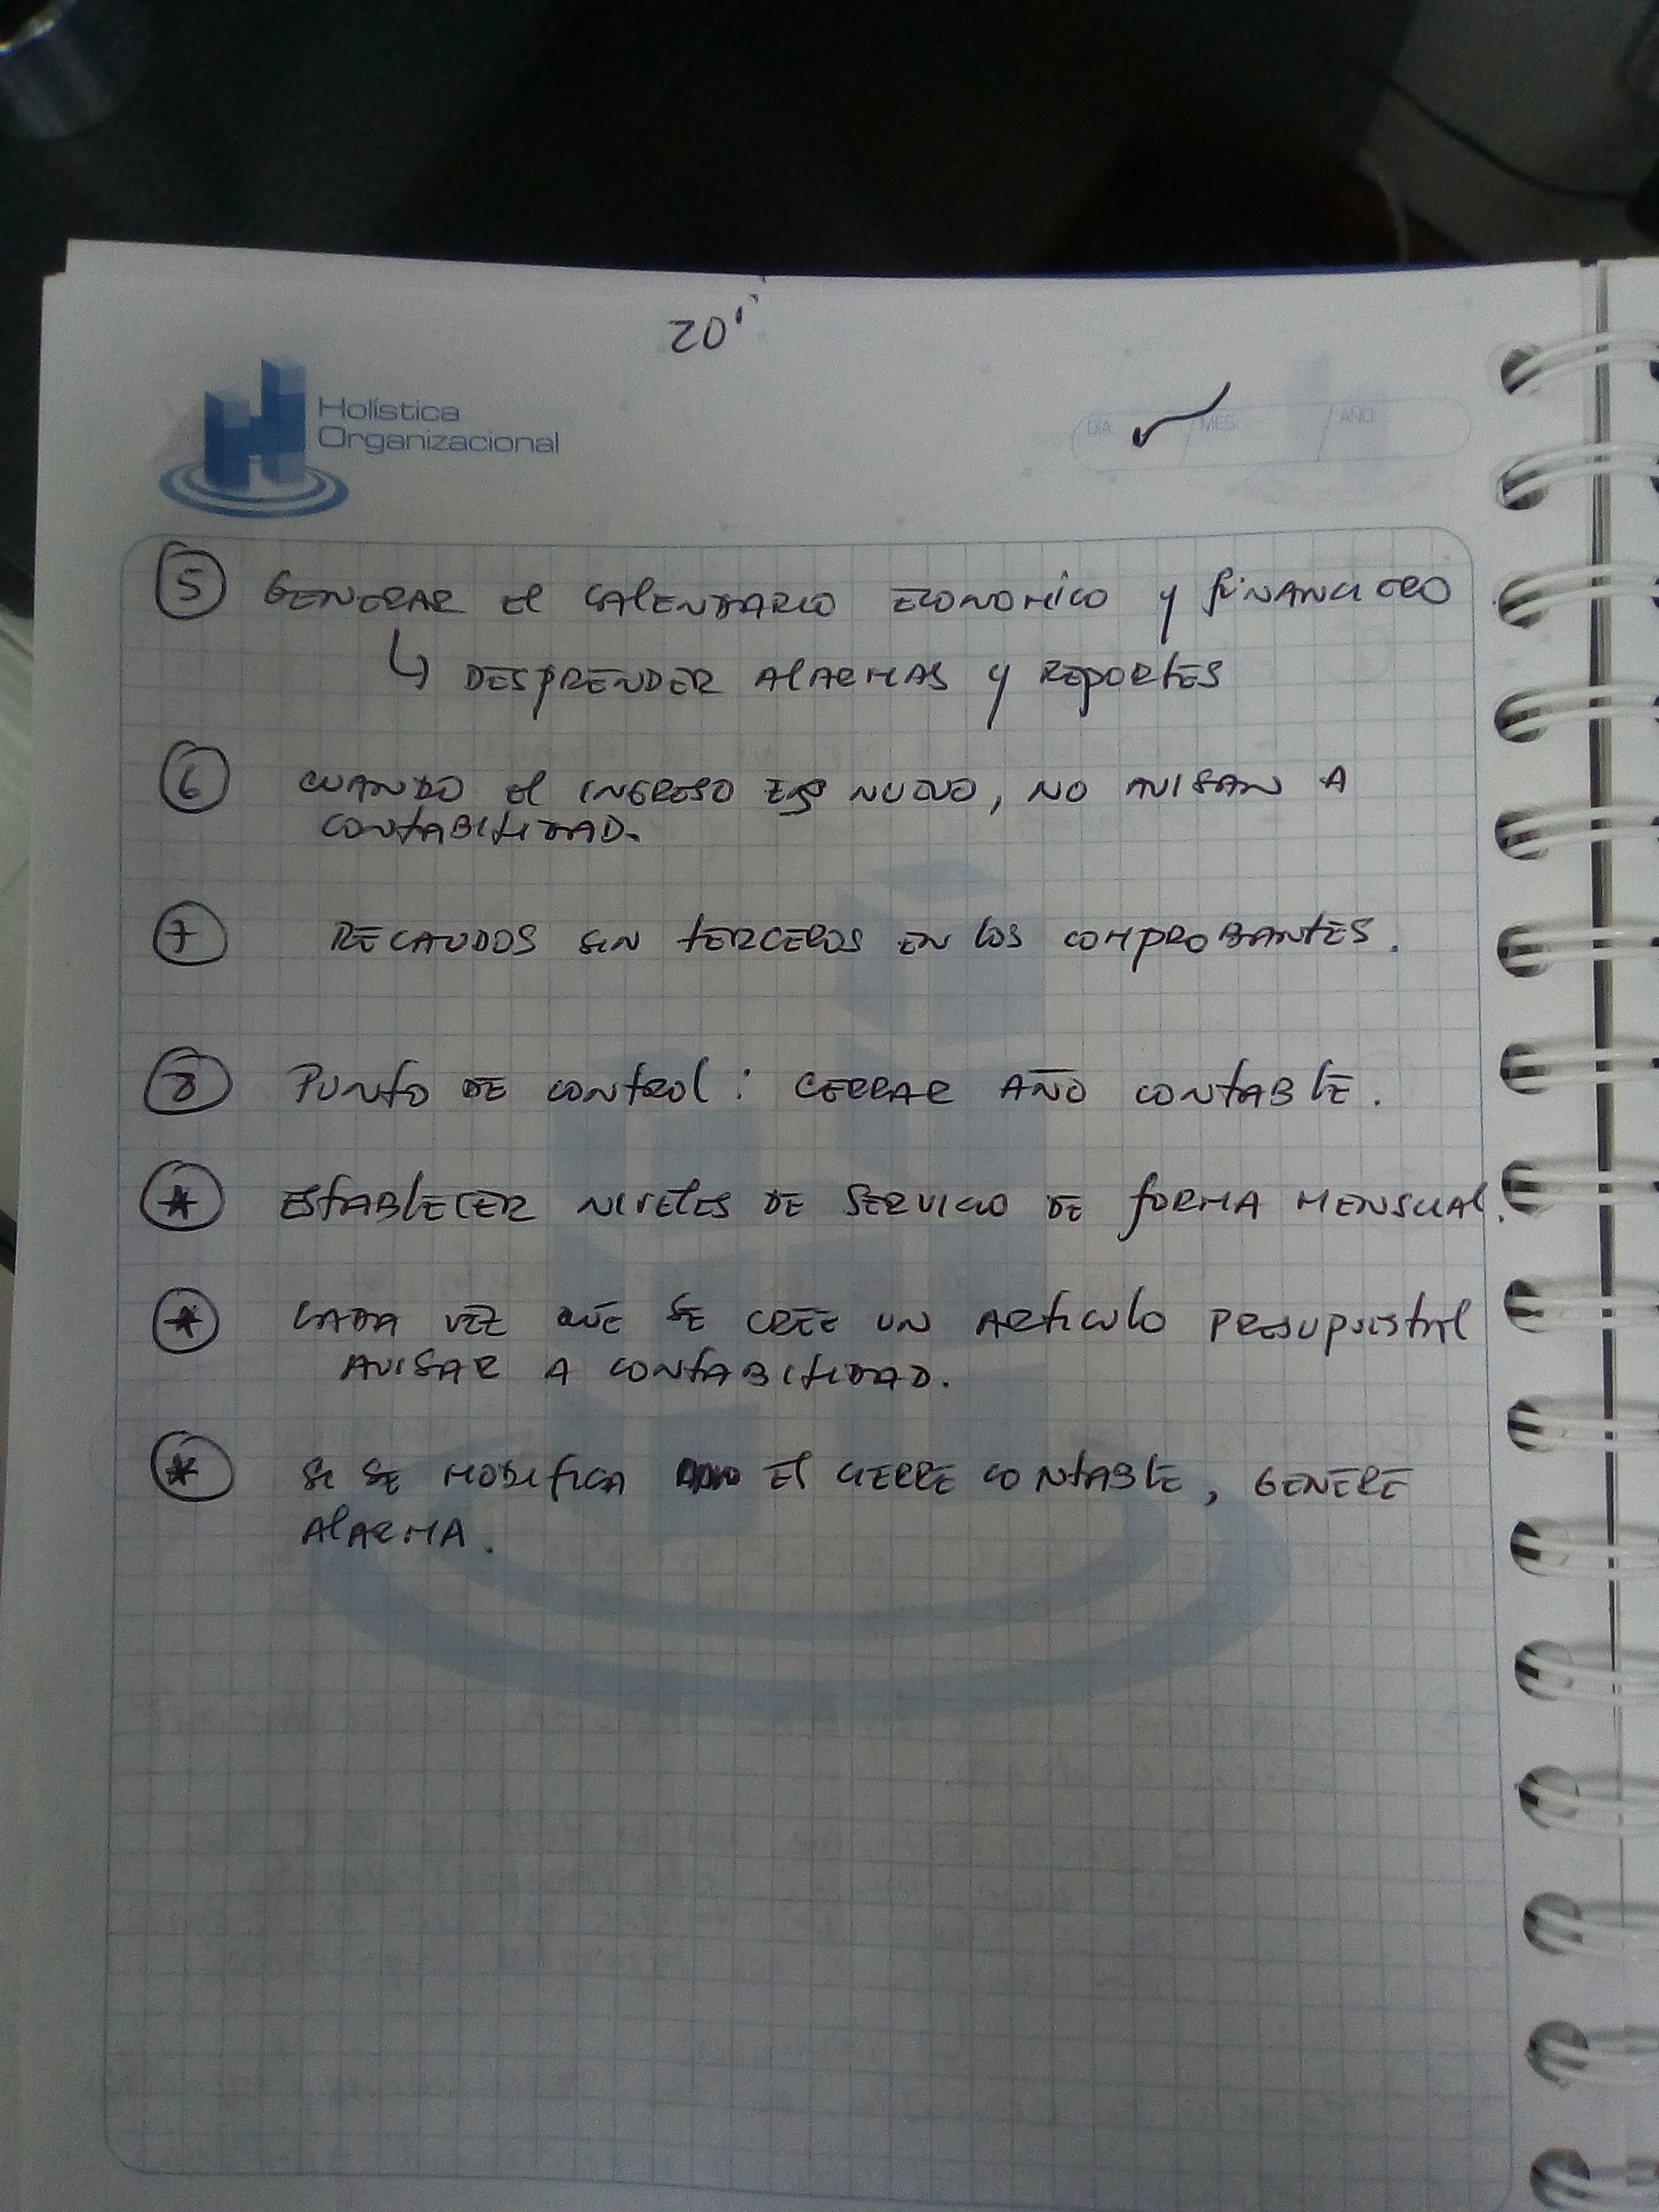 20'
Holística
Organizacional
DÍA: / MES: / AÑO:
5 GENERAR El CALENDARIO ECONOMICO y FINANCIERO
↳ DESPRENDER ALARMAS y REPORTES
6 CUANDO El INGRESO ES NUEVO, NO AVISAN A
CONTABILIDAD.
7 RECAUDOS SIN TERCEROS EN LOS COMPROBANTES.
8 PUNTO DE CONTROL: CERRAR AÑO CONTABLE.
* ESTABLECER NIVELES DE SERVICIO DE FORMA MENSUAL.
* CADA VEZ QUE SE CREE UN ARTICULO PRESUPUESTAL
AVISAR A CONTABILIDAD.
* SI SE MODIFICA El CIERRE CONTABLE, GENERE
ALARMA.